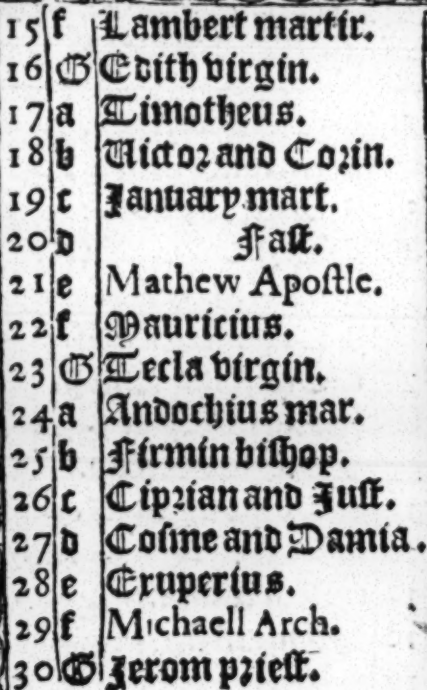 15 f Lambert martir.
16 G Edith virgin.
17 a Timotheus.
18 b Uictor and Corin.
19 c January mart.
20 d Fast.
21 e Mathew Apostle.
22 f Mauricius.
23 G Tecla virgin.
24 a Andochius mar.
25 b Firmin bishop.
26 c Ciprian and Just.
27 d Cosme and Damia.
28 e Exuperius.
29 f Michaell Arch.
30 G Jerom priest.